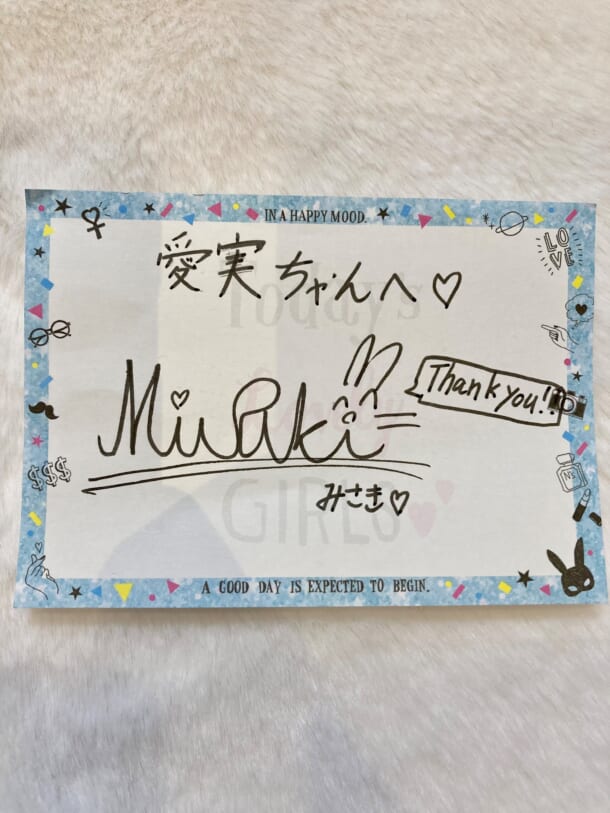 IN A HAPPY MOOD.
LOVE
愛実ちゃんへ♡
Today's
Misaki
Thank you!!
みさき♡
GIRLS
$$$
A GOOD DAY IS EXPECTED TO BEGIN.